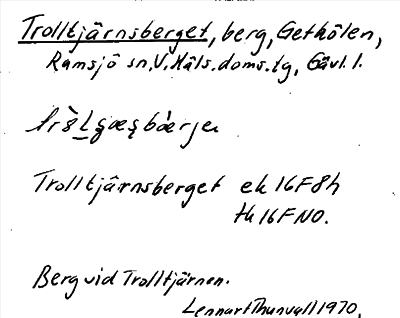 Trolltjärnsberget, berg, Gethölen,
Ramsjö sn. V. Häls. doms. lg, Gävl. l.
Trolltjärnsberget ek 16F8h
tk 16F NO.
Berg vid Trolltjärnen.
Lennart Thunvall 1970.